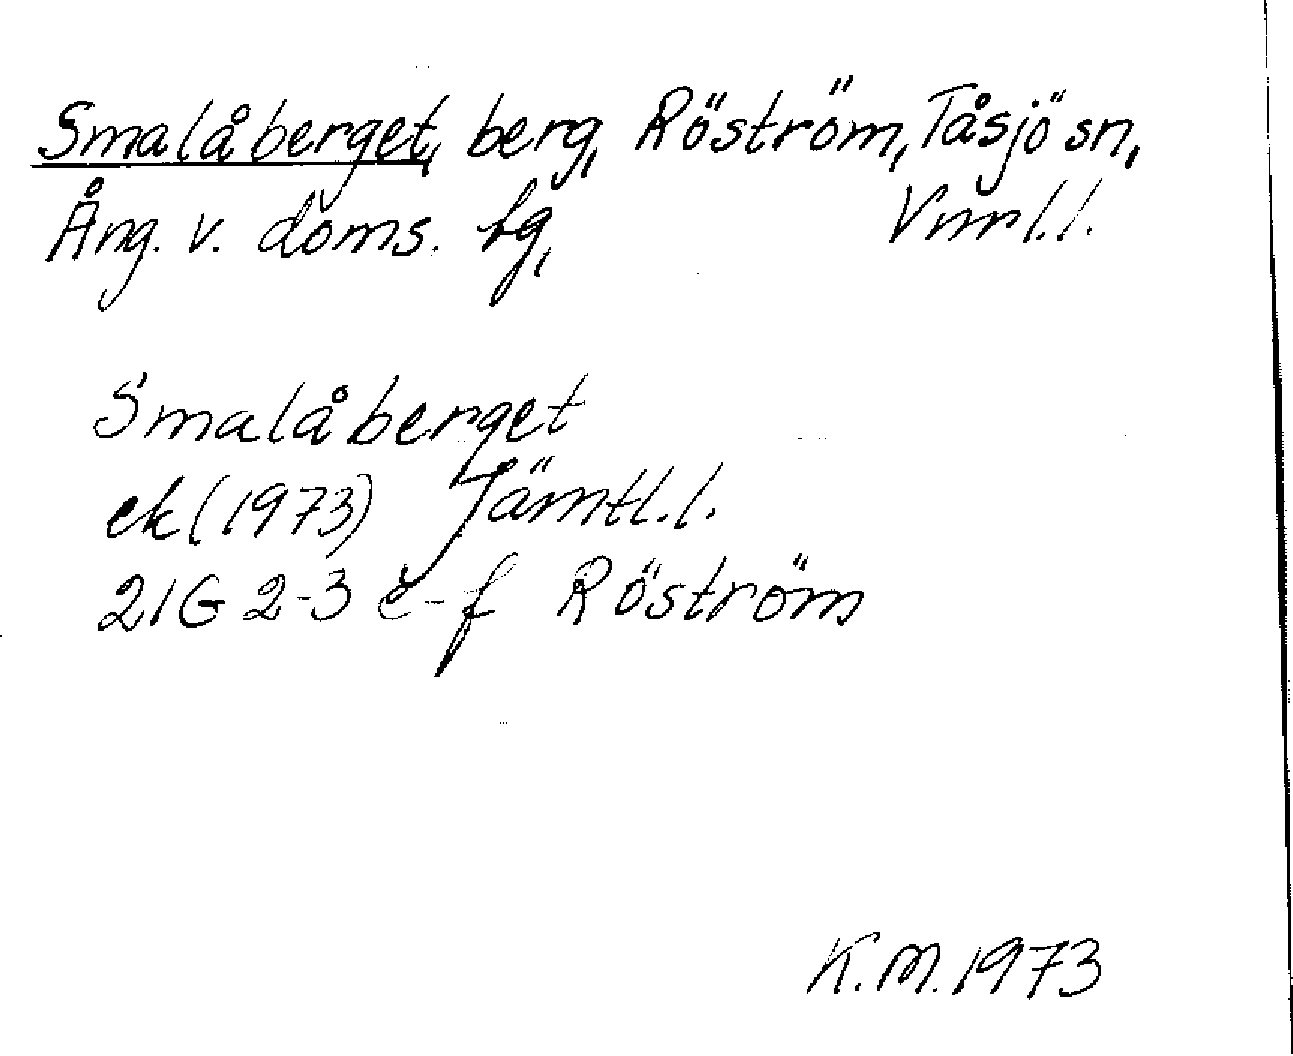 Smalåberget, berg, Röström, Tåsjö sn,
Ång. v. doms. fg, Vnrl.l.
Smalåberget
ek (1973) Jämtl.l.
21G 2-3 e-f Röström
K.M. 1973